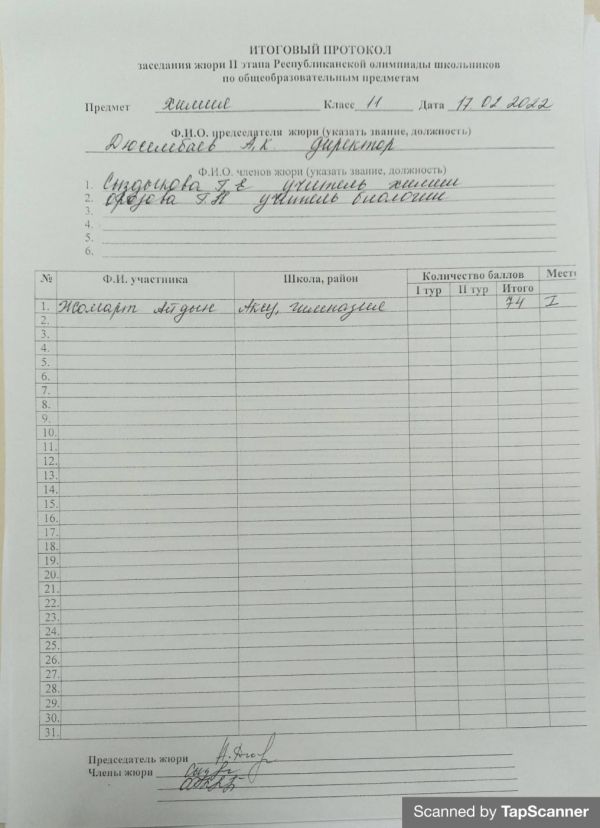 ИТОГОВЫЙ ПРОТОКОЛ
заседания жюри II этапа Республиканской олимпиады школьников
по общеобразовательным предметам
Предмет химия Класс 11 Дата 17.02 2022
Ф.И.О. председателя жюри (указать звание, должность)
Дюсембаев А.К директор
Ф.И.О. членов жюри (указать звание, должность)
1. Сыздыкова Г.Е учитель химии
2. учитель биологии
3.
4.
5.
6.
№ Ф.И. участника Школа, район Количество баллов Место
I тур II тур Итого
1. Жомарт Айдын Аксу, гимназия 74 I
2.
3.
4.
5.
6.
7.
8.
9.
10.
11.
12.
13.
14.
15.
16.
17.
18.
19.
20.
21.
22.
23.
24.
25.
26.
27.
28.
29.
30.
31.
Председатель жюри
Члены жюри
Scanned by TapScanner